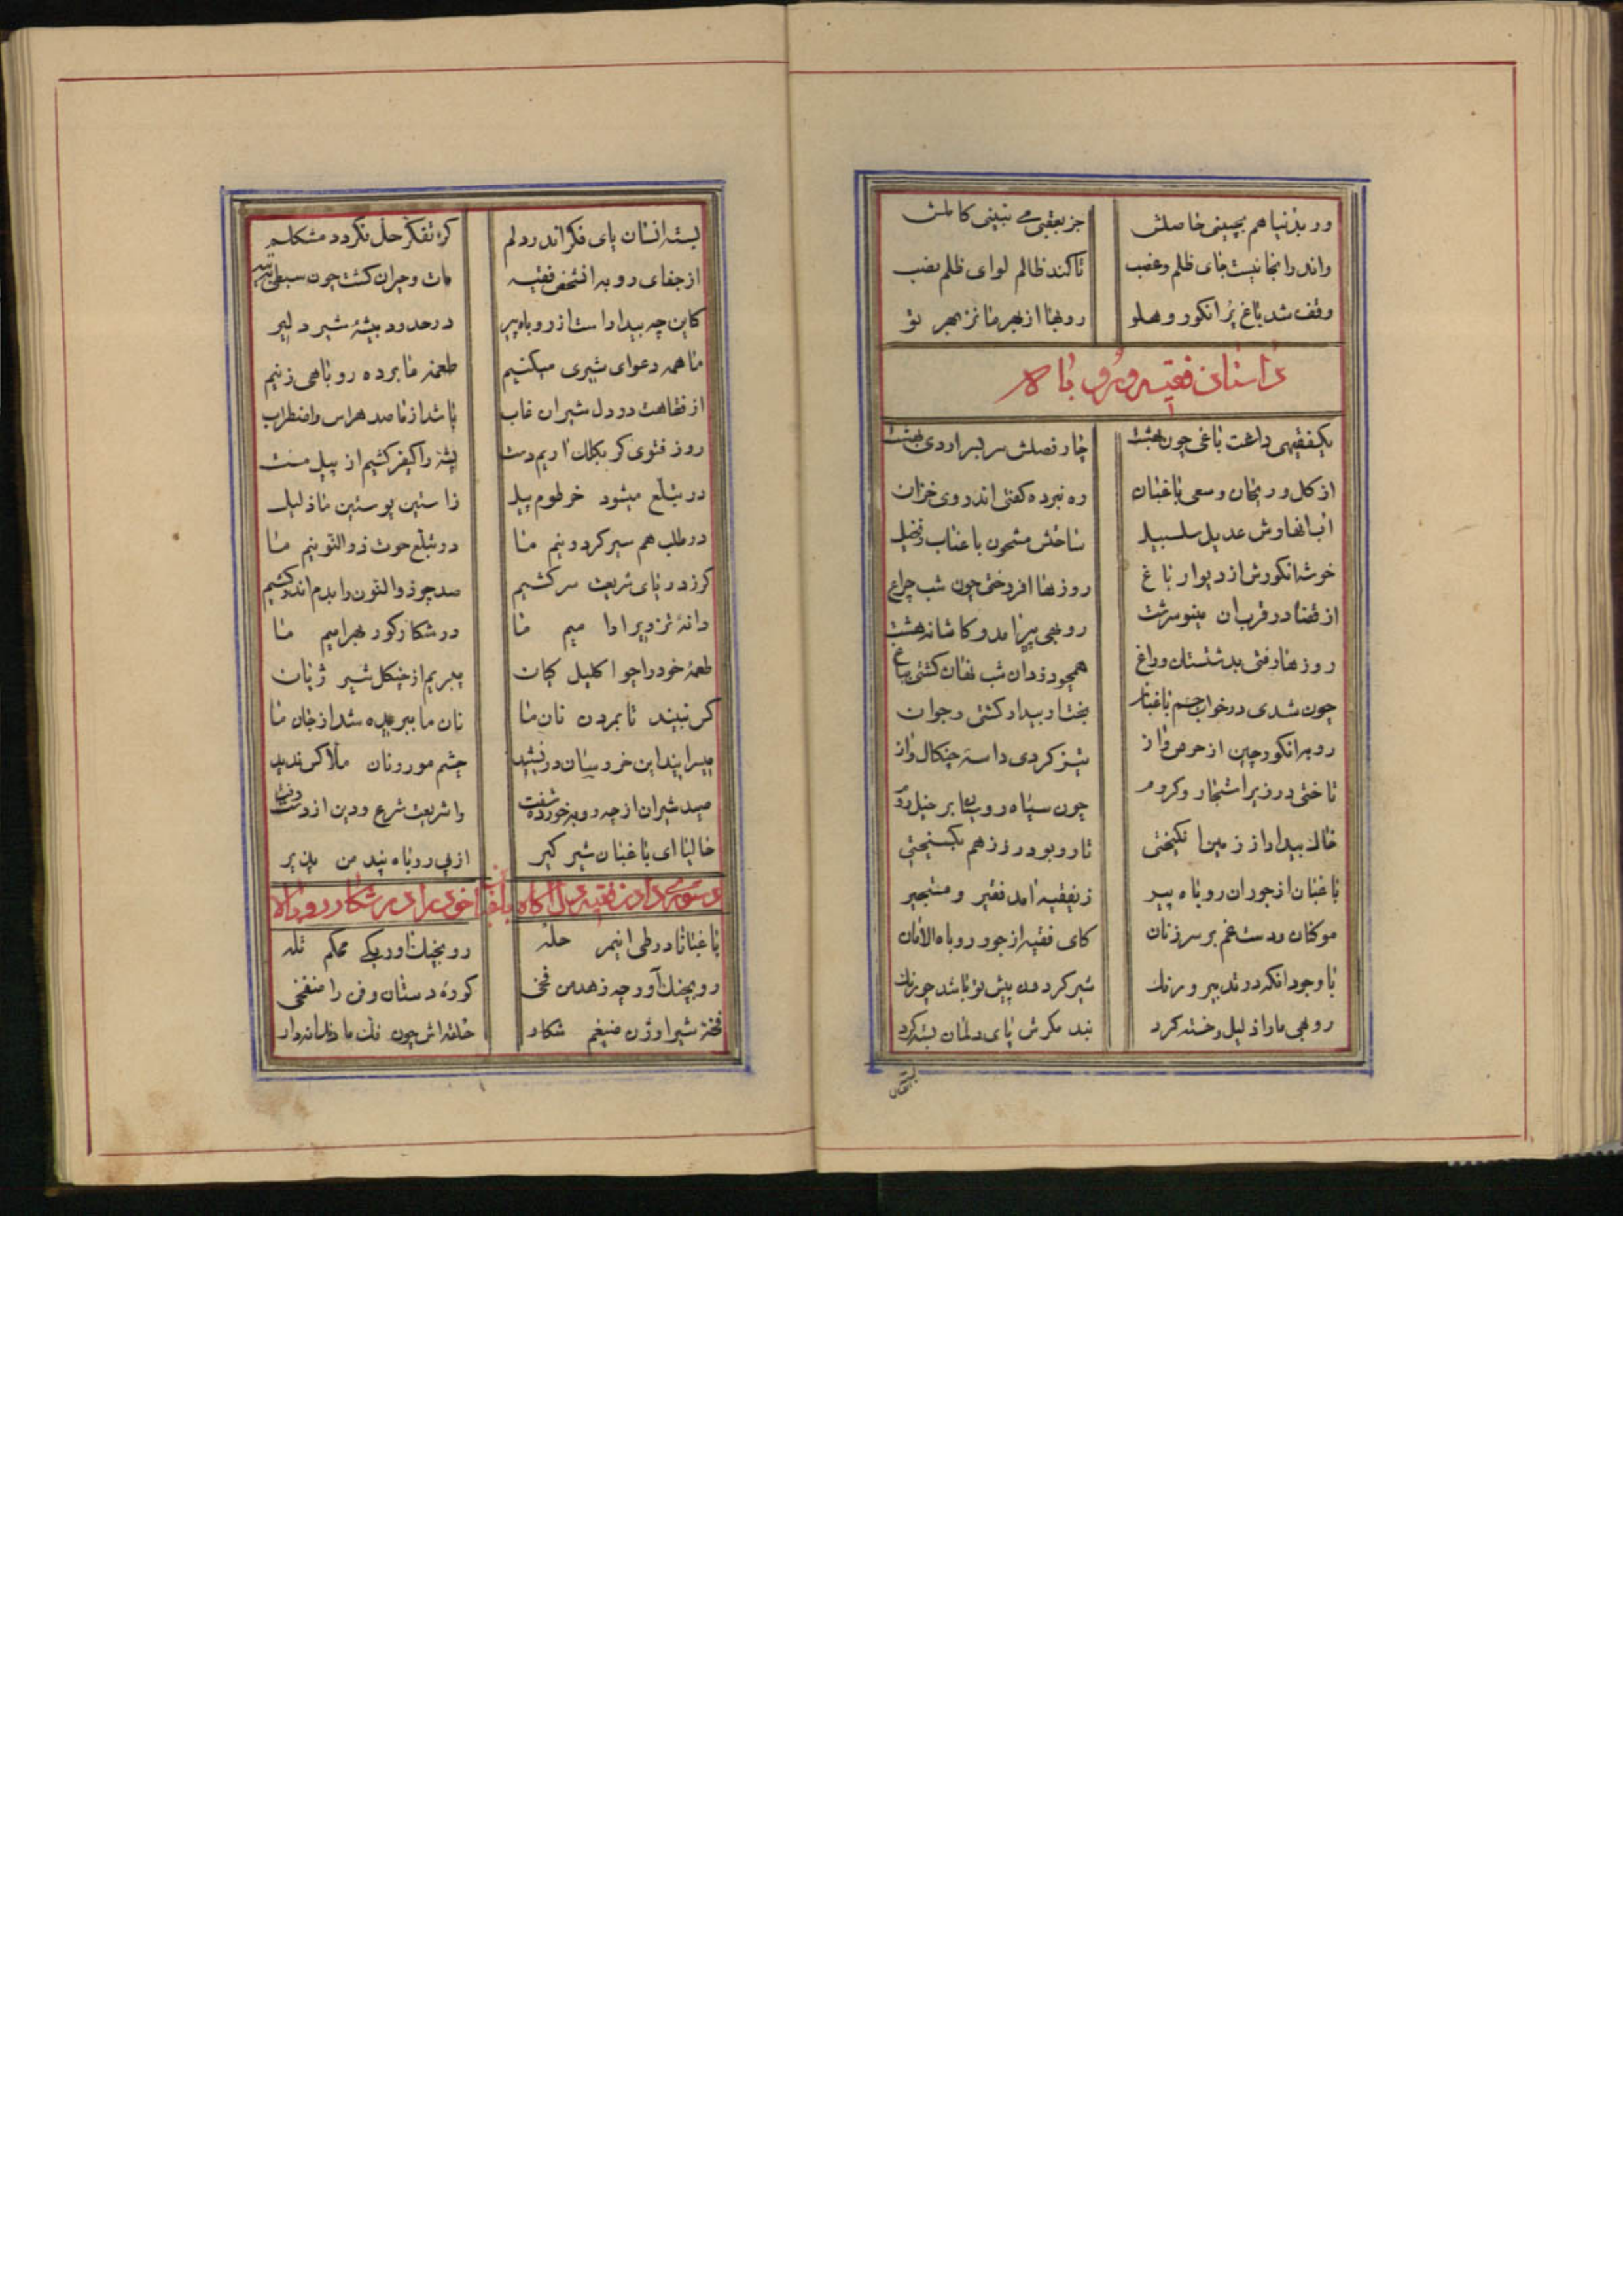 ور بدنیا هم بچینی حاصلش جز بعقبی می نبینی کاملش
واندر اینجا نیست جای ظلم و غصب تا کند ظالم لوای ظلم نصب
وقف شد باغ پر انکور و هلو روبها از بهر ما نز بهر تو
داستان فقیه و روباه
یکفقیهی داشت باغی چون بهشت چار فصلش سربسر اردی بهشت
از کل و ریحان و سعی باغبان ره نبرده کفتی اندر وی خزان
آب انهارش عدیل سلسبیل شاخش مشحون باعناب و نخیل
خوشه انکورش از دیوار باغ روزها افروختی چون شب چراغ
از قضا در قرب ان مینو سرشت روبهی پیر امد و کاشانه هشت
روزها رفتی بدشتستان و راغ همچو دزدان شب نهان کشتی بباغ
چون شدی در خواب چشم باغبان بختا و بیدار کشتی و جوان
روبه انکور چین از حرص و از تیز کردی داسهٔ چنکال و از
تاختی در زیر اشجار و کروم چون سپاه روسها بر خیل روم
خاک بیداد از زمین انکیختی تار و پود رز ز هم بکسیختی
باغبان از جور ان روباه پیر زیفقیه امد فقیر و مستجیر
موکنان و دست غم بر سر زنان کای فقیه از جور روباه الامان
با وجود انکه در تدبیر و رنک شیر کردون پیش تو باشد چو رنک
روبهی ما را ذلیل و خسته کرد بند مکرش پای دلمان بسته کرد
بسته انسان پای فکر اندر دلم کز تفکر حل نکردد مشکلم
از جفای روبه انشخص فقیه مات و حیران کشت چون سبطی بتیه
کاین چه بیداد است از روباه پیر در حدود بیشهٔ شیر دلیر
ما همه دعوای شیری میکنیم طعمهٔ ما برده روباهی زنیم
از فقاهت در دل شیران غاب باشد از ما صد هراس و اضطراب
روز فتوی کر بکلک اریم دست پشه را کیفر کشیم از پیل مست
در تبلع میشود خرطوم پیل ز استین پوستین ما ذلیل
در طلب هم سیر کردونیم ما در تبلع حوت ذوالنونیم ما
کر ز دریای شریعت سر کشیم صد چو ذوالنون را بدم اندر کشیم
دانهٔ تزویر را دامیم ما در شکار کور بهرامیم ما
طعمهٔ خود را چو اکلیل کیان ببریم از چنکل شیر ژیان
کس نبیند تا بمردن نان ما نان ما ببریده شد از جان ما
میسرایند این خروسان در نشید چشم مور و نان ملا کس ندید
صید شیران از چه روبه خورده شفت وا شریعت شرع و دین از دست رفت
حالیا ای باغبان شیر کیر از پی روباه پند من پذیر
دستور دادن فقیه دل آکاه باغبان خود را در شکار روباه
باغبانا در طی انیمر حله رو بچنک اور یکی محکم تله
رو بچنک آور چه زهد من فخی کوره دستان و فن را منفخی
فخهٔ شیر اوژن ضیغم شکار حلقه اش چون فلک ما دندانه دار